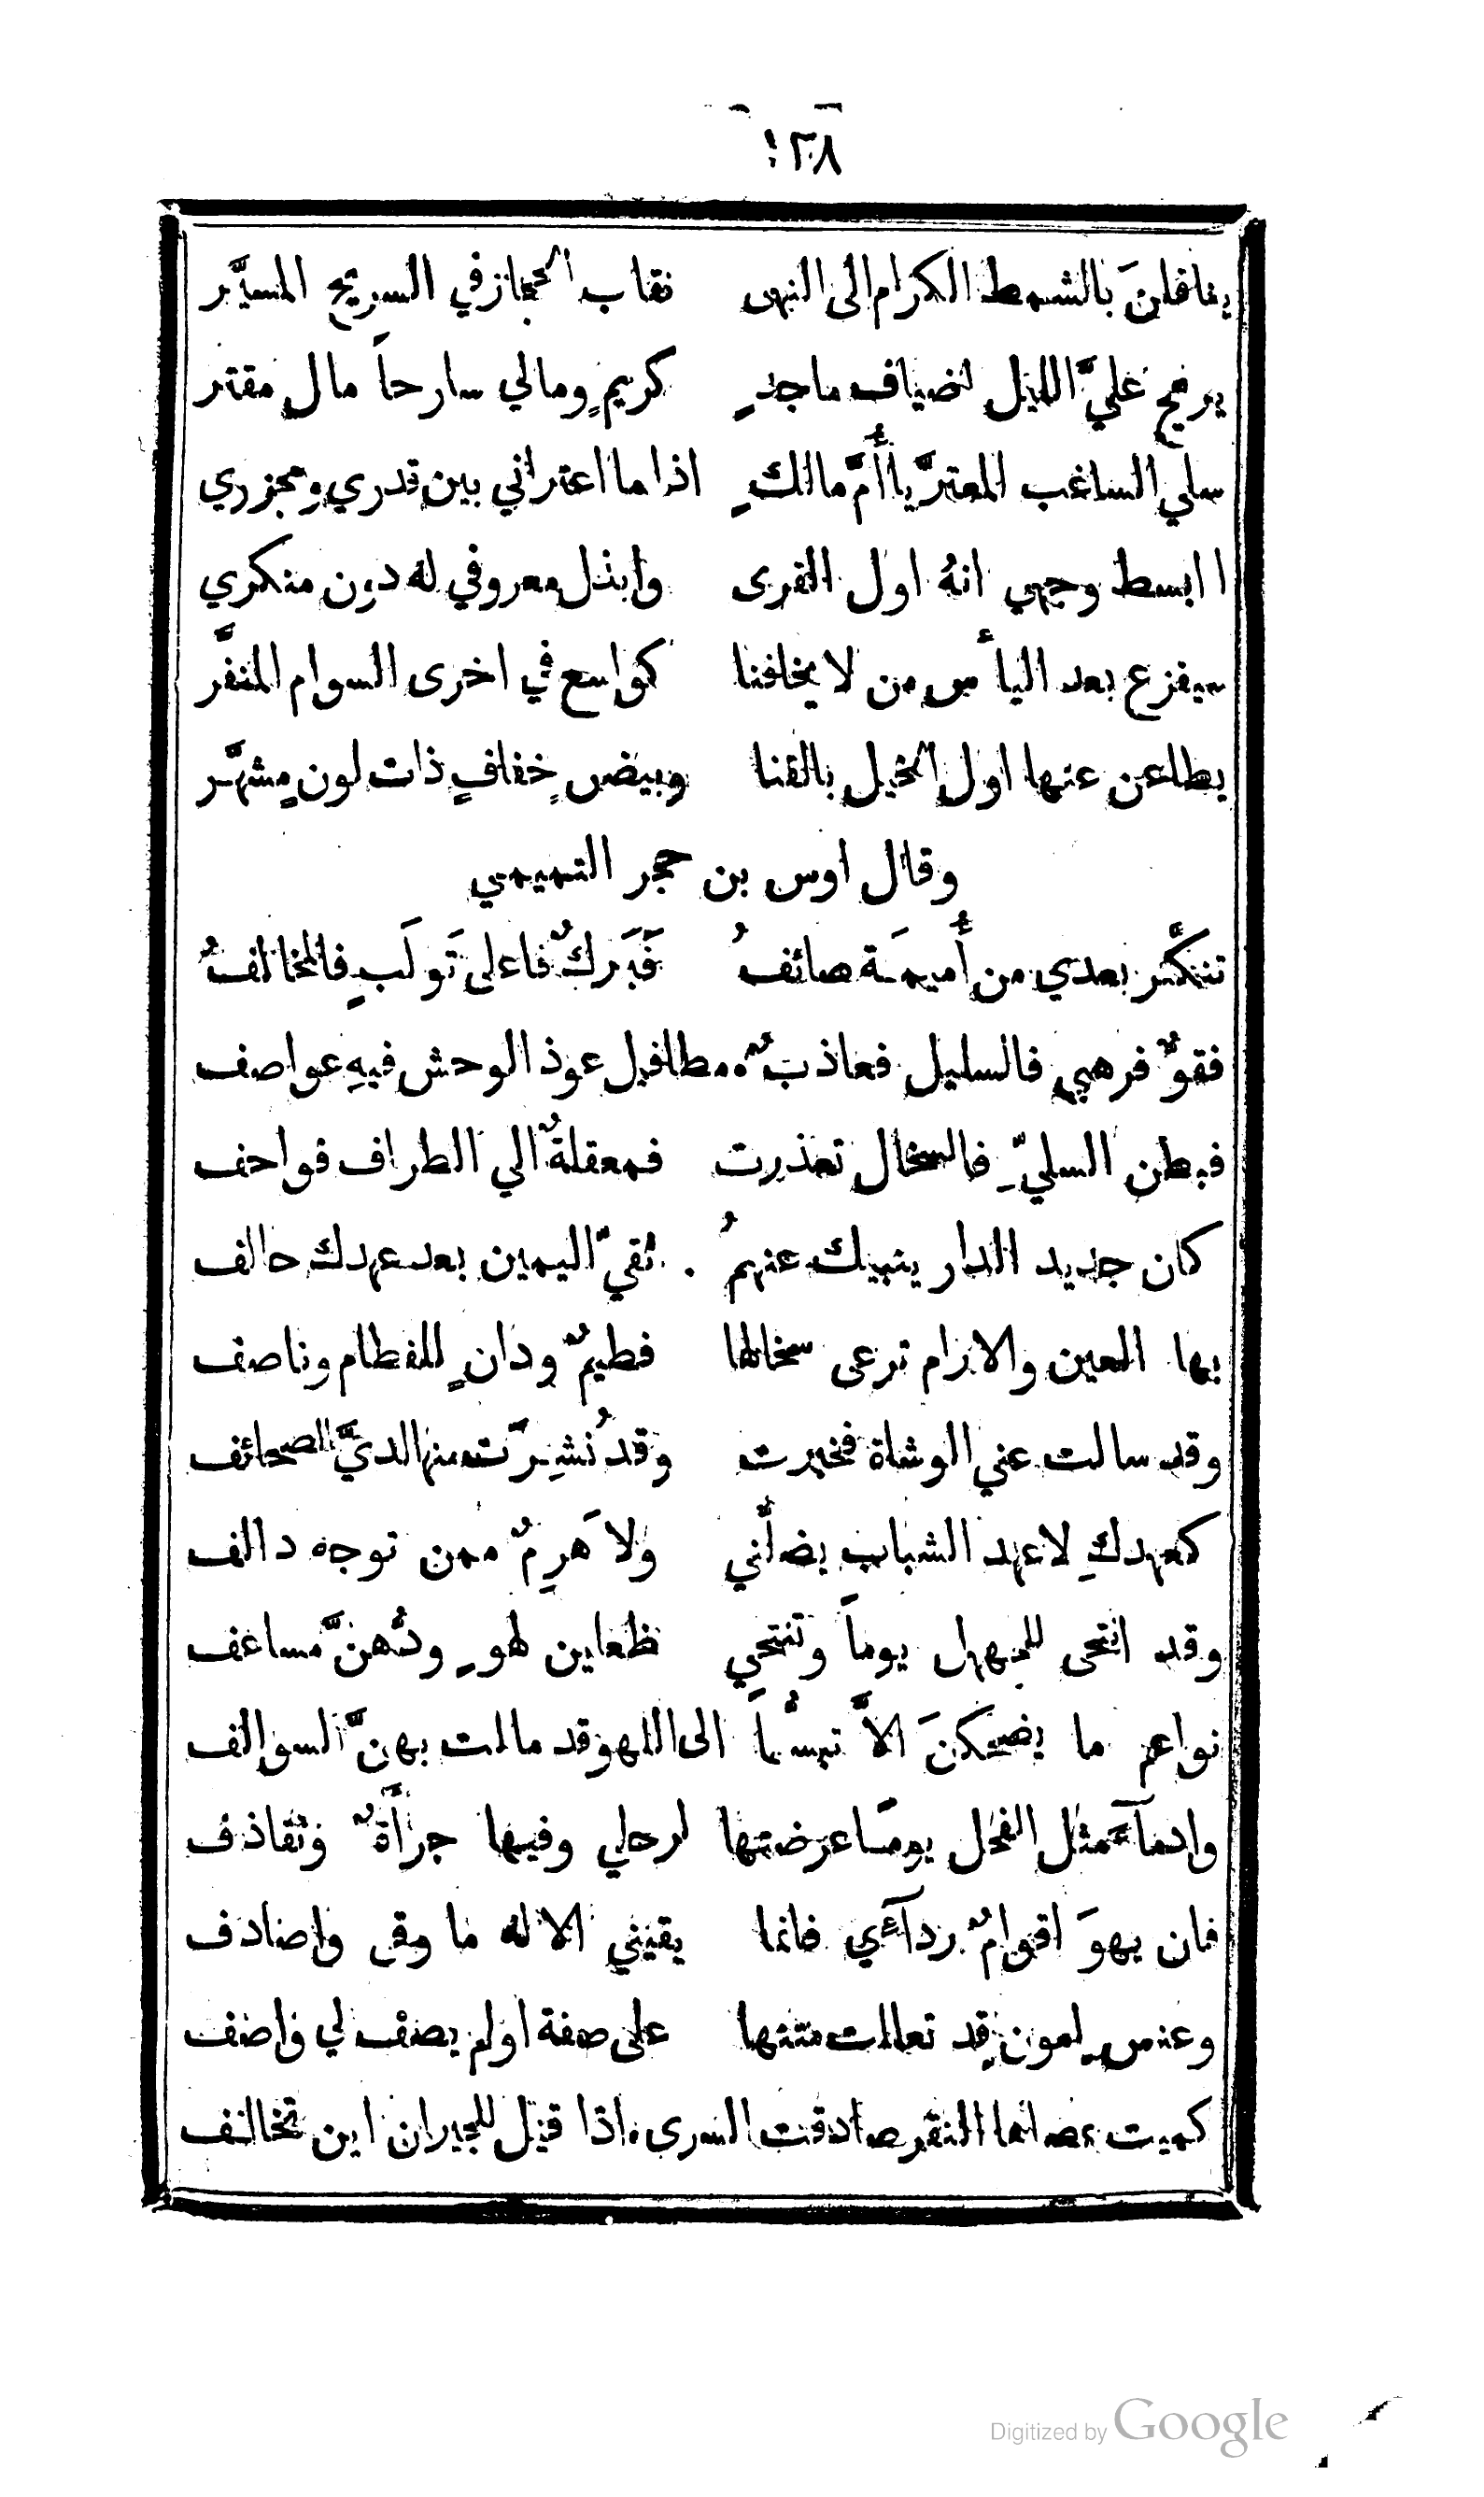 ١٢٨
يناقلنَ بالشمط الكرام الى النهى نقاب الحجاز في السريح المسيَّر
يريح عليَّ الليل اضياف ماجدٍ كريمٍ ومالي سارحاً مال مقتر
سلي الساغب المعترَّ يا أُمَّ مالكٍ اذا ما اعتراني بين قدري ومجزري
اابسط وجهي انهُ اول القرى وابذل معروفي له دون منكري
سيفزع بعد اليأس من لا يخافنا كواسع في اخرى السوام المنفَّر
يطاعن عنها اول الخيل بالقنا وبيضٍ خفافٍ ذات لونٍ مشهَّر
وقال اوس بن حجر التميمي
تنكّر بعدي من أُميمَة صائفُ فَبَركٌ فاعلى تَولَبٍ فالمخالفُ
فقوٌّ فرهبى فالسليل فعاذبٌ مطافيل عوذ الوحش فيهِ عواصف
فبطن السليِّ فالسخال تعذرت فمعقلةٌ الي الطراف فواحف
كان جديد الدار ينبيك عنهمُ تقيّ اليمين بعد عهدك حالف
بها العين والارام ترعى سخالها فطيمٌ ودانٍ للفطام وناصف
وقد سالت عني الوشاة فخبرت وقد نُشِرَت منها لديَّ الصحائف
كعهدكِ لا عهد الشباب يضلُّني ولا هَرِمٌ ممن توجه دالف
وقد انتحى للجهل يوماً وتنتحي ظعاين لهوٍ ودُّهنَّ مساعف
نواعم ما يضحكنَ الاَّ تبسُّماً الى اللهو قد مالت بهنَّ السوالف
وادمآءَ مثل الفحل يومًا عرضتها لرحلي وفيها جرأَةٌ وتقاذف
فان يهوَ اقوامٌ ردآءي فانما يقيني الاله ما وقى واصادف
وعنس امون قد تعاللت متنها على صفة او لم يصفْ لي واصف
كميت عصاها النقر صادقت السرى اذا قيل للجيران اين تخالف
Digitized by Google